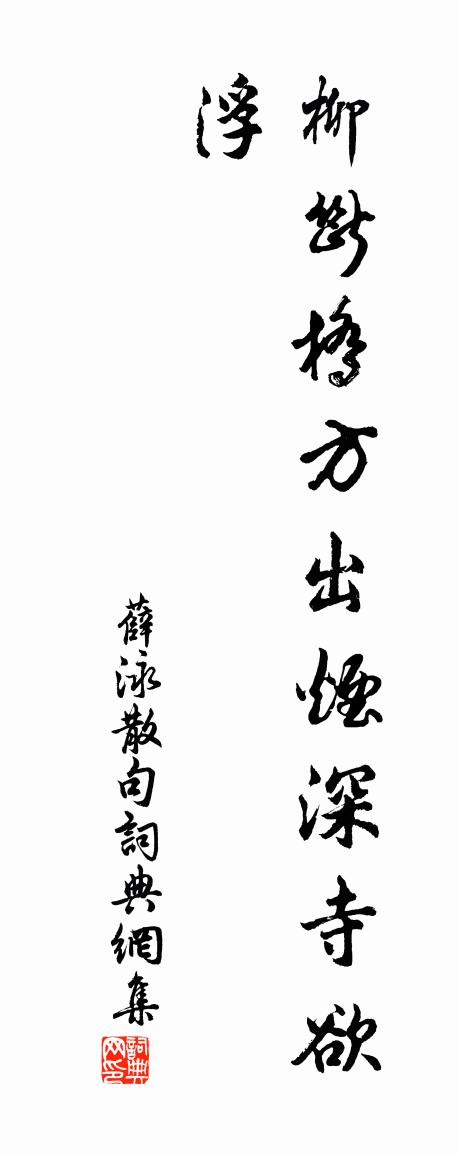 柳斷橋方出煙深寺欲
浮
薛泳散句詞典網集
詞典网印